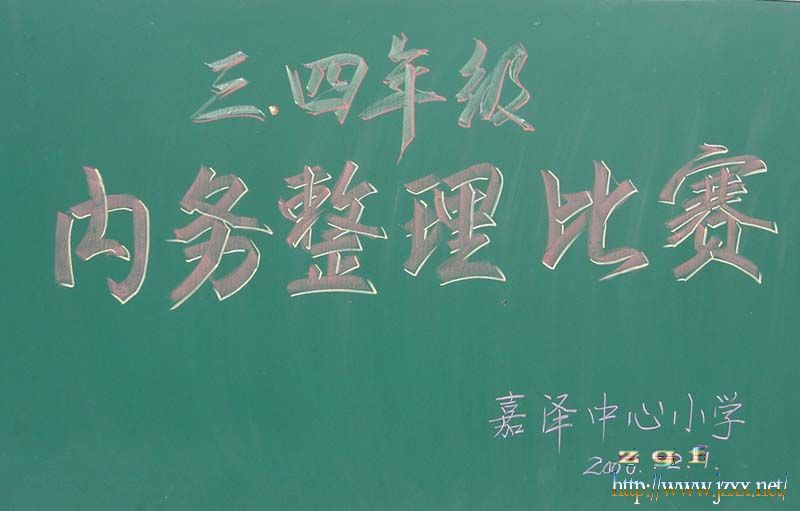 三.四年级
内务整理比赛
嘉泽中心小学
zgf
http://www.jzxx.net/